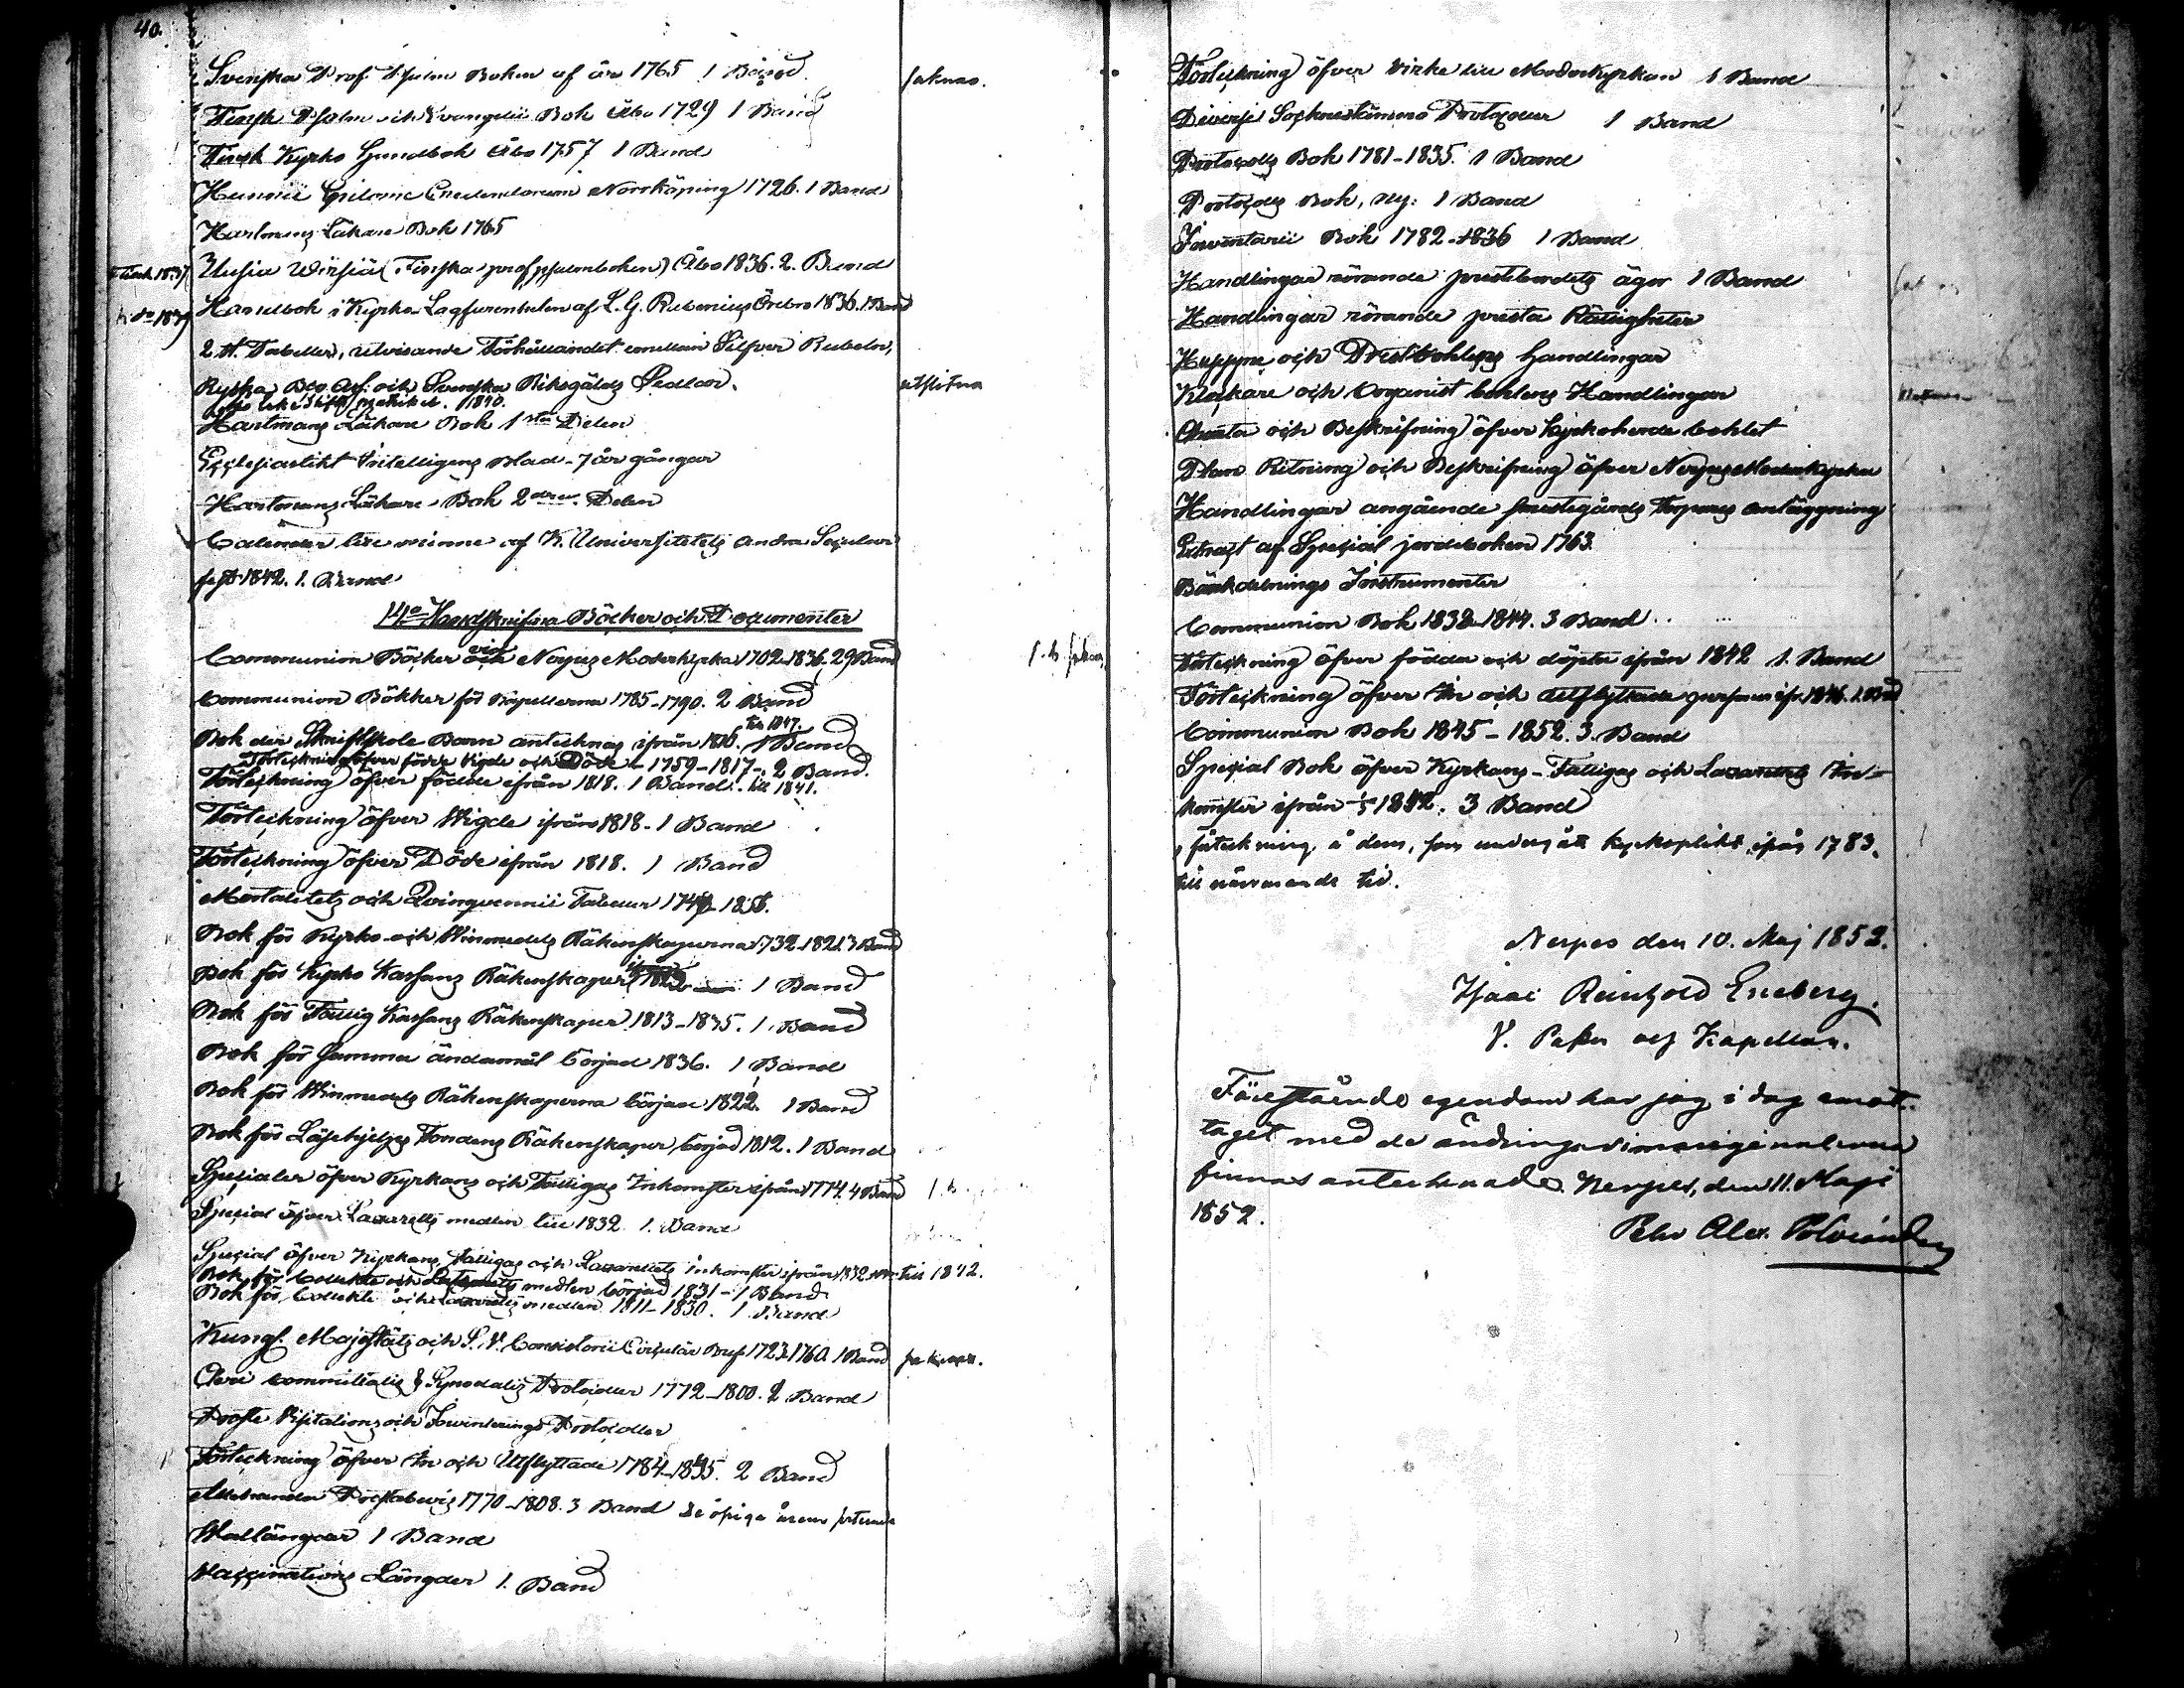 40.
Svenska Prof Psalm Boken af år 1765 1 Band. saknas.
Finsk Psalm och Evangelii Bok Åbo 1729 1 Band
Finsk Kyrko Handbok Åbo 1757 1 Band
Hunnii Epitome Credendorum Norrköping 1726. 1 Band
Hartmans Läkare Bok 1765
Uusia Wirsiä (Finska profpsalmboken) Åbo 1836. 2. Band
Handbok i Kyrko-Lagfarenheten af L. G. Rabenius Örebro 1836. 1 Band
2 st. Tabeller, utvisande Förhållandet emellan Silfver Rubeln,
Ryska Bco Ass: och Svenska Riksgälds Sedlar. utslitna
1840.
Hartmans Läkare Bok 1sta Delen
Ecclesiastikt Intelligens Blad - 7 år gångar
Hartmans Läkare-Bok 2dra Delen
Calender till minne af K. Universitetets andra Secular
fest 1842. 1. Band
14o Handskrifna Böcker och Documenter
Communion Böcker vid Nerpes Moderkyrka 1702-1836. 29 Band
Communion Bökker för Kapellerna 1785-1790. 2 Band
Bok der Skriftskole Barn antecknas ifrån 1816. till 1847. 1 Band
Förteckning öfver födde Vigde och Döde - 1759-1817-. 2 Band.
Förteckning öfver födde ifrån 1818. 1 Band. till 1841.
Förteckning öfver Wigde ifrån 1818 - 1 Band
Förteckning öfver Döde ifrån 1818. 1 Band
Mortalitets och Qvinqvennii Tabeller
Bok för Kyrko och Winmedels Räkenskaperna 1732-1821. 3 Band
Bok för Kyrko Kassans Räkenskaper ifrån 1 Band
Bok för Fattig Kassans Räkenskaper 1813-1835. 1 Band
Bok för samma ändamål börjad 1836. 1 Band
Bok för Winmedels Räkenskaperna börjad 1822. 1 Band
Bok för Läsehjelps Fondens Räkenskaper, börjad 1812. 1 Band
Specialer öfver Kyrkans och Fattigas Inkomster ifrån 1774. 4 Band
Special öfver Lazaretts medlen till 1832. 1. Band
Special öfver Kyrkans, Fattigas och Lazarettets inkomster ifrån 1832 till 1842.
Bok för Collekte och Lazaretts medlen börjad 1831 - 1 Band
Bok för Collekte och Lazaretts medlen 1811-1830. 1 Band
Kungl. Majestäts och S. V. Consistorii Circulär Bref 1723-1760. 1 Band saknas.
Cleri comitialis & Synodalis Protocoller 1772-1800. 2 Band
Proste Visitations och Inventerings Protocoller
Förteckning öfver In och Utflyttade 1784-1845. 2 Band
Attestander Prestabevis 1770-1808. 3 Band
Wallängder 1 Band
Vaccinations Längder 1. Band
Förteckning öfver Virke till Moderkyrkan 1 Band
Diverse Sockenstämmo Protocoller 1 Band
Protocolls Bok 1781-1835. 1 Band
Protocolls Bok, ny: 1 Band
Inventarii Bok 1782-1836 1 Band
Handlingar rörande prestebordets ägor 1 Band
Handlingar rörande presta Rättigheter
och Prestbohlens Handlingar
Klåkare och Organist bohlens Handlingar
Charta och Beskrifning öfver Kyrkoherde bohlet
Plan Ritning och Beskrifning öfver Nerpes Moderkyrka
Handlingar angående prestegårds Torpares anläggning
Extract af Special jordeboken 1763.
Bänkdelnings Instrumenter
Communion Bok 1838-1844. 3 Band
Förteckning öfver födda och döpta ifrån 1842 1. Band
Förteckning öfver In och Utflyttade personer ifr. 1846. 1. Band
Communion Bok 1845-1852. 3. Band
Special Bok öfver Kyrkans - Fattigas och Lazarettets In-
komster ifrån 1842. 3 Band
förteckning å dem, som undergått kyrkoplikt ifrån 1783.
till närvarande tid.
Nerpes den 10. Maj 1852.
Isaac Reinhold Eneberg.
V. Pastor och Kapellan.
Förestående egendom har jag i dag emot-
taget med de ändringar i marginalerna
finnas antecknade. Nerpes, den 11. Maji
1852.